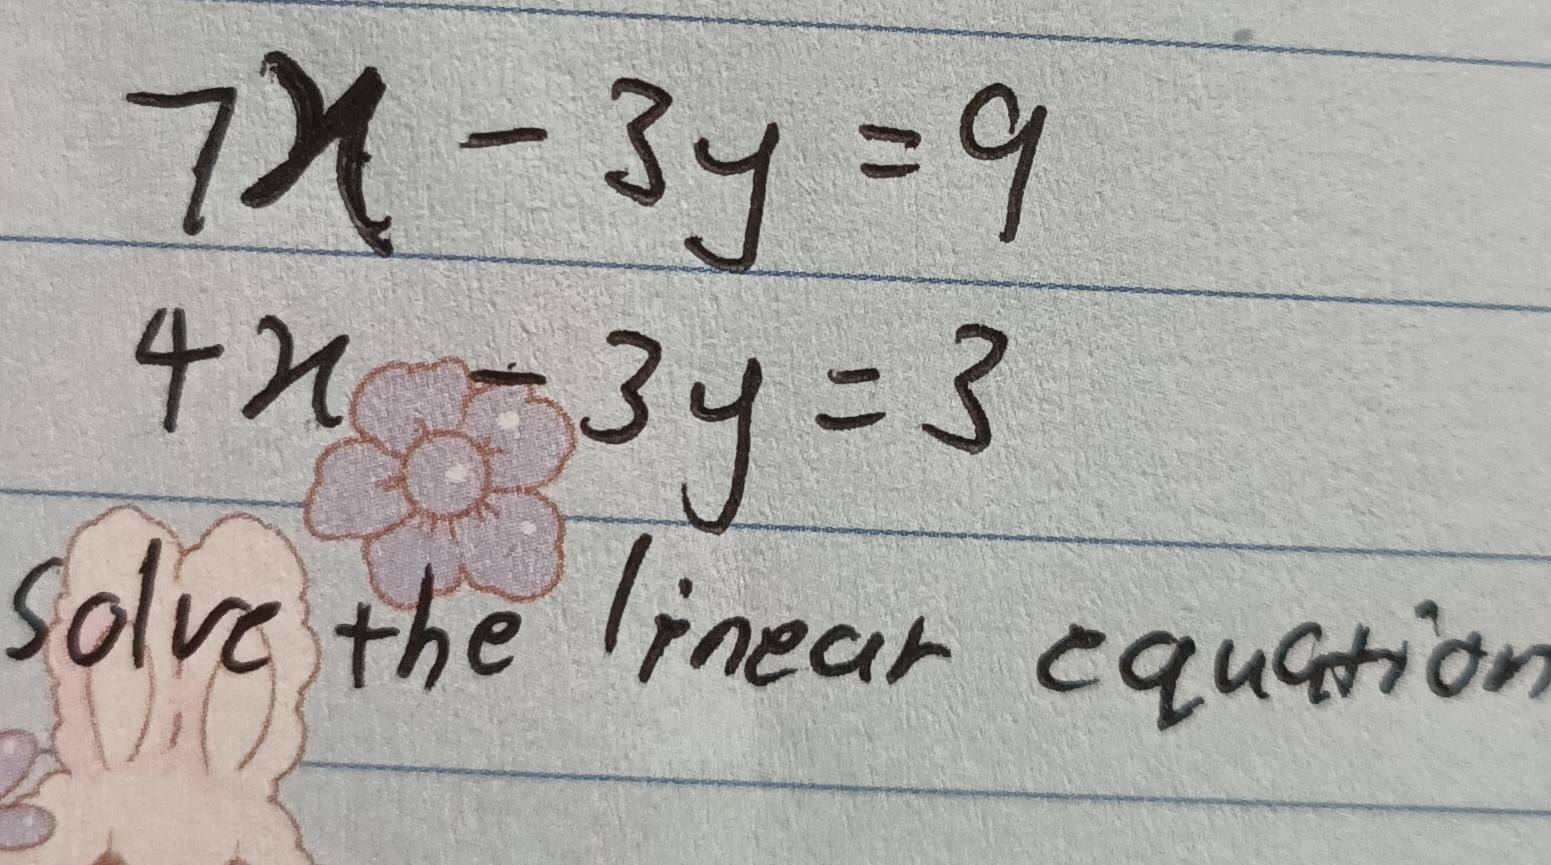 7x - 3y = 9
4x - 3y = 3
Solve the linear equation